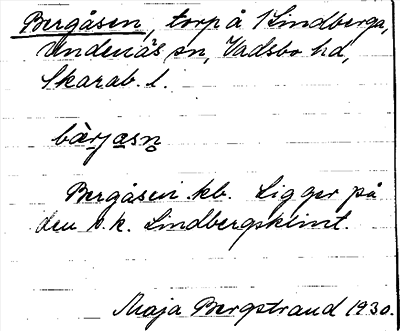 Bergåsen, torp å 1 Lindberga,
Undenäs sn, Vadsbo hd,
Skarab. l.
bærjæsn̥
Bergåsen kb. Ligger på
den s.k. Lindbergsklint.
Maja Bergstrand 1930.